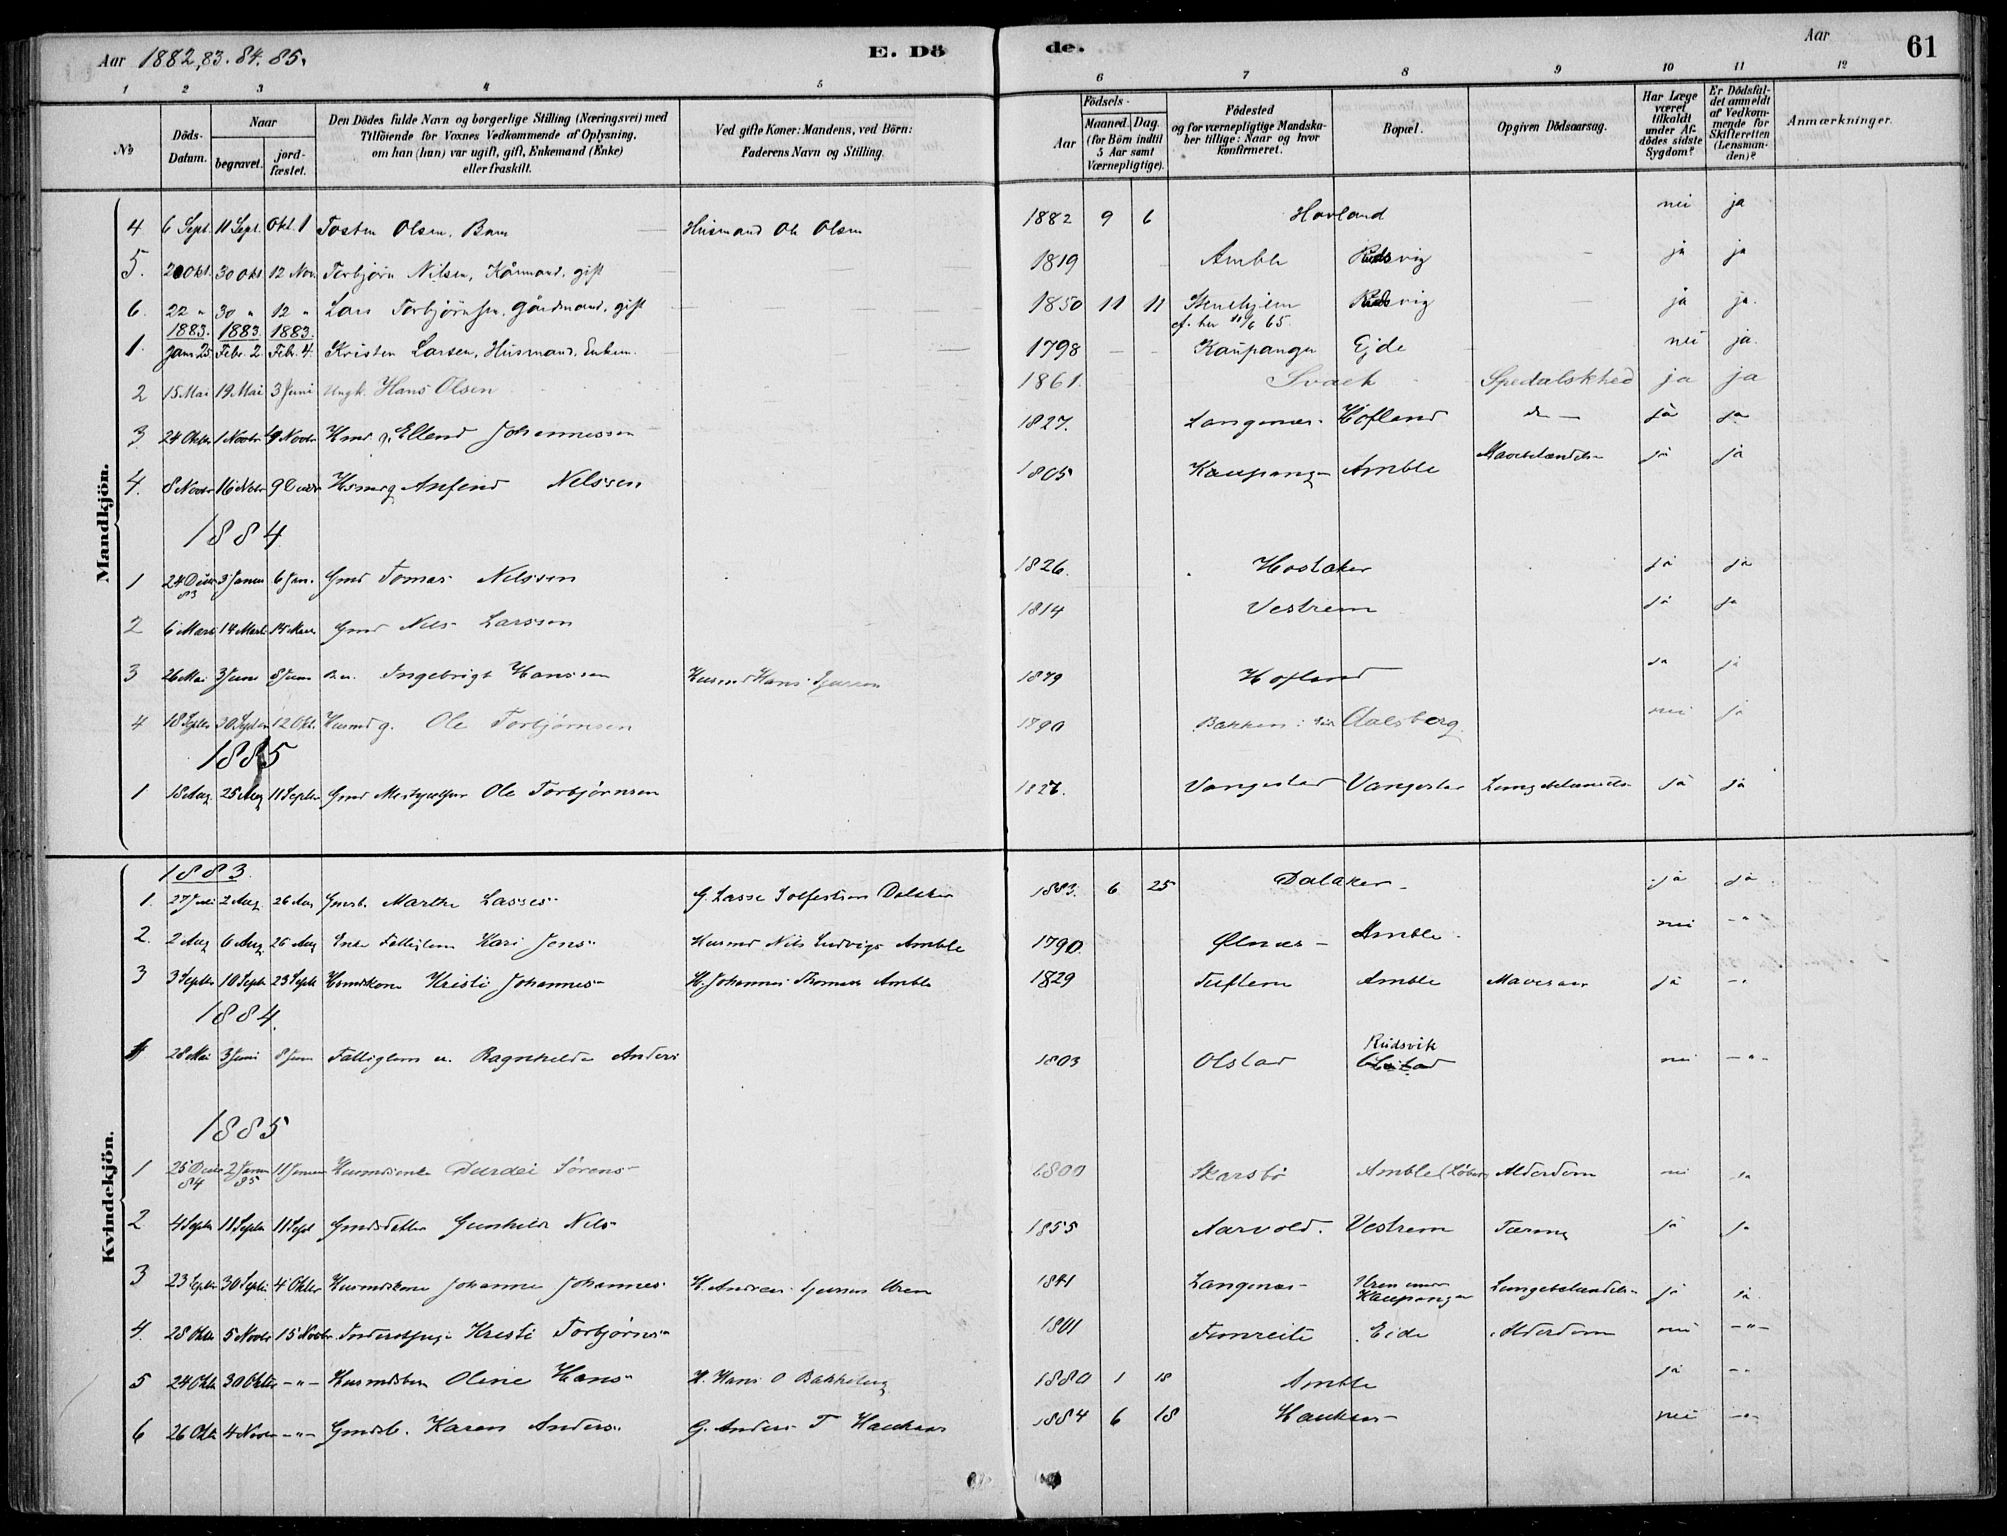 Aar 1882, 83. 84. 85.
E. Dö
de.
Aar
61
1 2 3 4 5 6 7 8 9 10 11 12
No
Döds-Datum.
Naar
begravet.
jordfæstet.
Den Dödes fulde Navn og borgerlige Stilling (Næringsvei) med
Tilföiende for Voxnes Vedkommende af Oplysning,
om han (hun) var ugift, gift, Enkemand (Enke)
eller fraskilt.
Ved gifte Koner: Mandens, ved Börn:
Faderens Navn og Stilling.
Födsels-
Aar
Maaned. Dag.
(for Börn indtil
5 Aar samt
Værnepligtige).
Födested
og for værnepligtige Mandskaber tillige: Naar og hvor
konfirmeret.
Bopæl.
Opgiven Dödsaarsag.
Har Læge
været
tilkaldt
under Afdödes sidste
Sygdom?
Er Dödsfaldet anmeldt
af Vedkommende for
Skifteretten
(Lensmanden)?
Anmærkninger.
Mandkjön.
4 6 Sept. 11 Sept. Okt. 1 Tosten Olsen, Barn Husmand Ole Olsen 1882 9 6 Hovland nei ja
5. 20 Okt. 30 Okt. 12 Nov. Torbjørn Nilsen, Kårmand, gift 1819 Amble Rudsvig ja ja
6. 22 " 30 " 12 " Lars Torbjørnsen, Gårdmand, gift 1850 11 11 Stenehjem Rudsvig ja ja.
1883. 1883. 1883.
1. Janr 25 Febr. 2 Febr. 4. Kristen Larsen, Husmand, Enkem. 1798 Kaupanger Ejde nei ja.
2 15 Mai 19 Mai 3 Juni Ungk. Hans Olsen 1861. Svaek Spedalskhed ja ja
3 24 Oktbr 1 Novbr 19 Novbr Hmd g. Ellend Johannessen 1827. Langenes Hofland do — ja ja
4. 8 Novbr 16 Nobr 9 Decbr Hsmd g Anfind Nelssen 1805 Kaupanger Amble ja ja
1884
1 24 Decbr 83 3 Januar 6 Jan. Gmd Tomas Nilssen 1826. Hostaker ja ja
2 6 Marts 14 Marts Gmd Nils Larssen 1814 Vestrem ja ja
3 26 Mai 3 Juni 8 Juni Ingebrigt Hanssen Husmd Hans 1879 Hofland ja ja
4 18 Septbr 30 Septbr 12 Okt. Husmd g. Ole Torbjørnsen 1790 Bakken Aalsberg nei ja
1885
1 18 Aug. 25 Aug 11 Septbr Gmd Ole Torbjørnsen Vangestad Vangestad ja ja
Kvindekjön.
1883
1. 27 Juli 2 Aug. 26 Aug Gmdsb. Marthe Lasses- G. Lasse Dalaker 1883. 6 25 Dalaker ja ja
2. 2 Aug 6 Aug 26 Aug Enke Kari Jens- Husmd Nils Ludvigs Amble 1790. Ølnes Amble nei -"
3 3 Septbr 10 Septbr 23 Septbr Hsmdskone Kristi Johannes- H. Johannes Thomas Amble 1829 Tuftem Amble ja -"
1884.
28 Mai 3 Juni 8 Juni Ragnhilda Anders 1803 Olstad Rudsvik nei -"-
1885
1 25 Decbr 84 2 Januar 85 11 Januar Durdei Sørens- 1800 Skarsbø Amble Alderdom nei ja
2 4 Septbr 11 Septbr 11 Sept Gmdsdatter Gunhild Nils- 1855 Aarvold. Vestrem Tæring ja ja
3 23 Septbr 30 Septbr 4 Oktbr Husmdskone Johanne Johannes- H. Andreas Uren Langenes ja ja.
4. 28 Oktbr 5 Novbr 15 Novbr. Kristi Torbjørns- 1801 Fimreite Eide Alderdom nei -"-
5 24 Oktbr 30 Oktbr -"- Husmdsbarn Oline Hans- H. Hans O 1880 1 18 Amble ja -"
6 26 Oktbr 4 Novbr -"- Gmdsb. Karen Anders- G. Anders T 1884 6 18 nei -"-